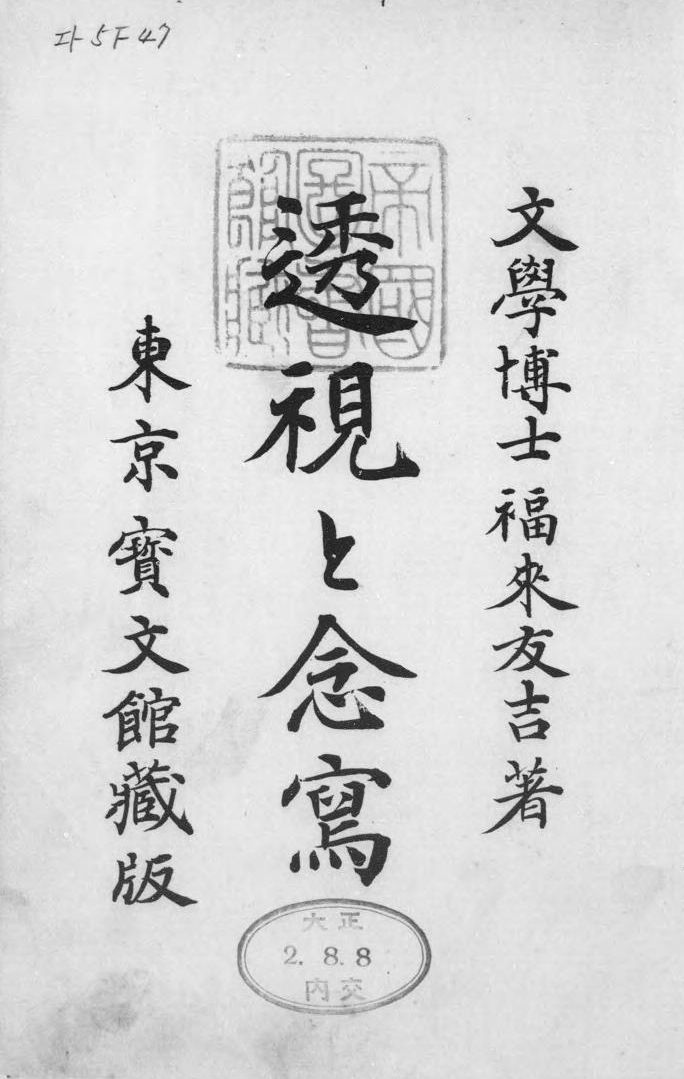 文學博士福來友吉著
帝國
圖書
館藏
透視と念寫
東京寶文館藏版
大正
2. 8. 8
内交